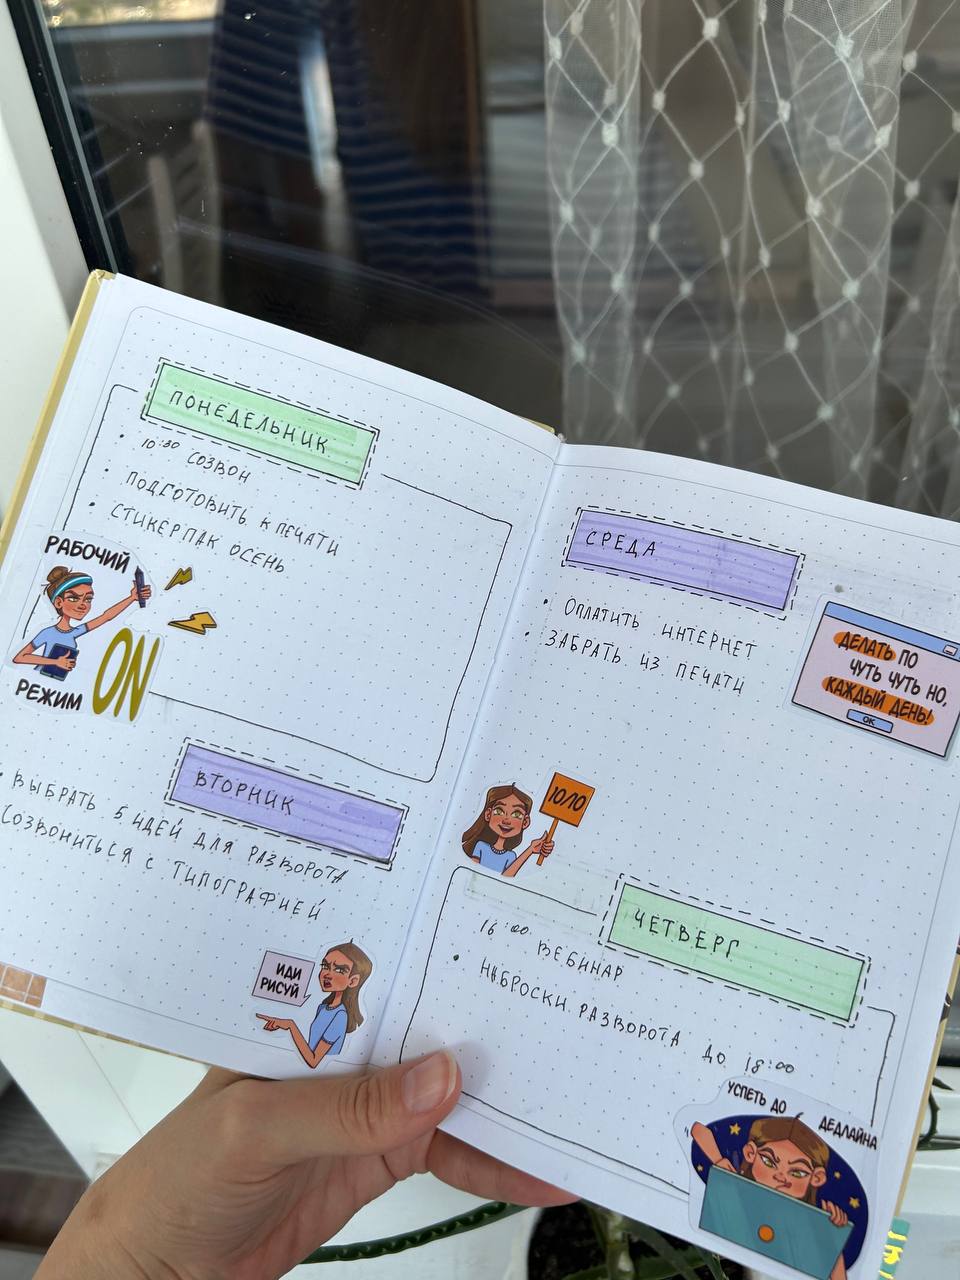 ПОНЕДЕЛЬНИК
• 10:30 СОЗВОН
• ПОДГОТОВИТЬ К ПЕЧАТИ
• СТИКЕРПАК ОСЕНЬ
РАБОЧИЙ
РЕЖИМ ON
ВТОРНИК
• ВЫБРАТЬ 5 ИДЕЙ ДЛЯ РАЗВОРОТА
СОЗВОНИТЬСЯ С ТИПОГРАФИЕЙ
ИДИ
РИСУЙ
СРЕДА
• ОПЛАТИТЬ ИНТЕРНЕТ
• ЗАБРАТЬ ИЗ ПЕЧАТИ
ДЕЛАТЬ ПО
ЧУТЬ ЧУТЬ НО,
КАЖДЫЙ ДЕНЬ!
OK
10/10
ЧЕТВЕРГ
16:00 ВЕБИНАР
• НАБРОСКИ РАЗВОРОТА ДО 18:00
УСПЕТЬ ДО ДЕДЛАЙНА